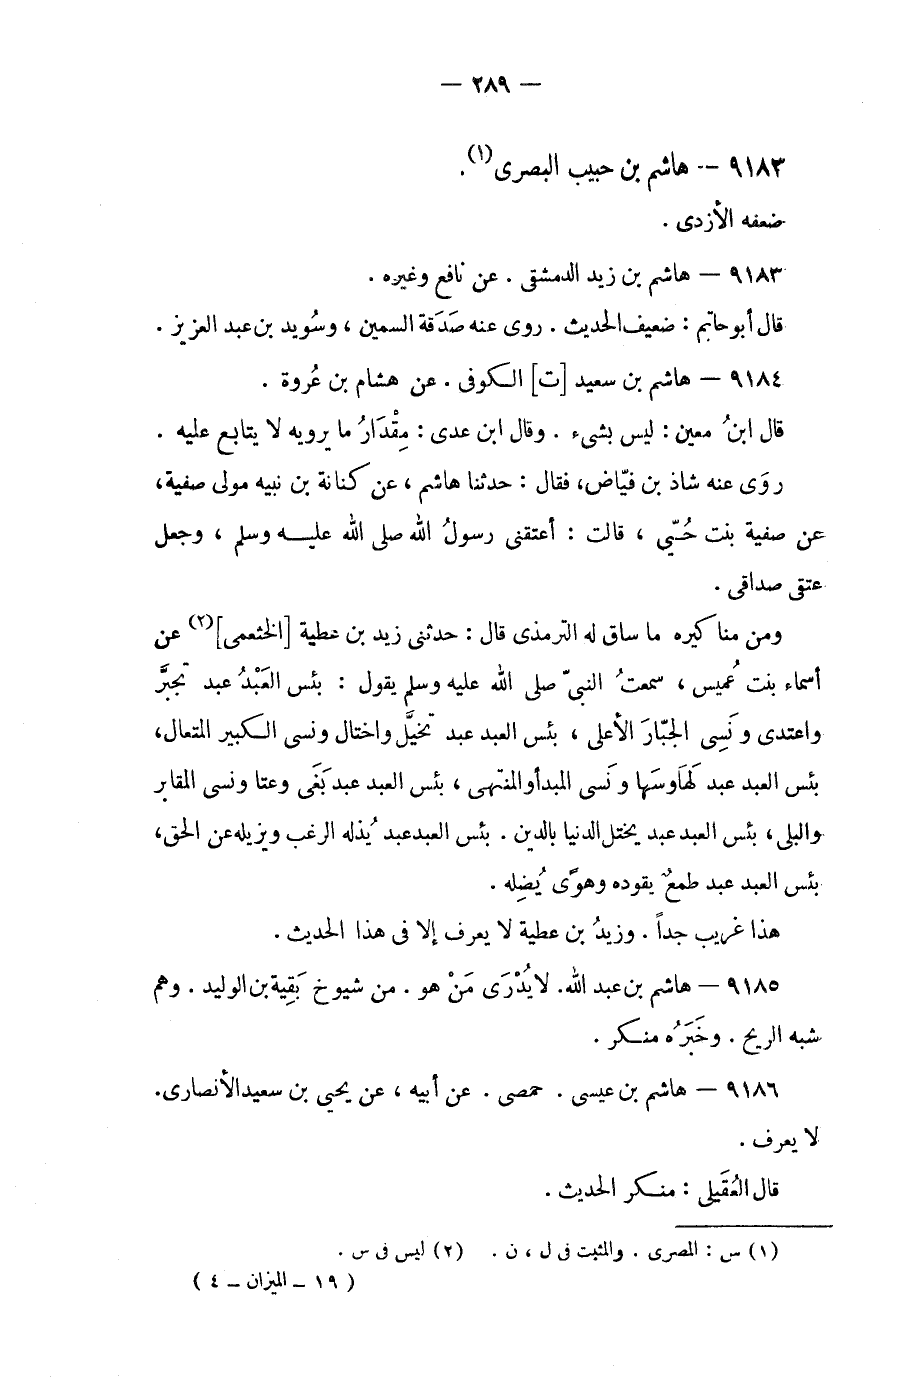 — ٢٨٩ —
٩١٨٣ — هاشم بن حبيب البصرى(١).
ضعفه الأزدى .
٩١٨٣ — هاشم بن زيد الدمشقى . عن نافع وغيره .
قال أبو حاتم : ضعيف الحديث . روى عنه صَدَقة السمين ، وسُويد بن عبد العزيز .
٩١٨٤ — هاشم بن سعيد [ت] الكوفى . عن هشام بن عُروة .
قال ابنُ معين : ليس بشىء . وقال ابن عدى : مِقْدَارُ ما يرويه لا يتابع عليه .
روَى عنه شاذ بن فيّاض، فقال : حدثنا هاشم ، عن كنانة بن نبيه مولى صفية،
عن صفية بنت حُـيّي ، قالت : أعتقنى رسولُ الله صلى الله عليه وسلم ، وجعل
عتقى صداقى .
ومن مناكيره ما ساق له الترمذى قال : حدثنى زيد بن عطية [الخثعمى](٢) عن
أسماء بنت عُميس ، سمعتُ النبىّ صلى الله عليه وسلم يقول : بئس العَبْدُ عبد تجبَّر
واعتدى ونَسِى الجبّارَ الأعلى ، بئس العبد عبد تخيَّل واختال ونسى الكبير المتعال،
بئس العبد عبد لَهَا وسَها ونَسى المبدأ والمنتهى ، بئس العبد عبد بَغَى وعتا ونسى المقابر
والبلى ، بئس العبد عبد يختل الدنيا بالدين . بئس العبد عبد يُذله الرغب ويزيله عن الحق،
بئس العبد عبد طمعٌ يقوده وهوًى يُضِله .
هذا غريب جداً . وزيدُ بن عطية لا يعرف إلا فى هذا الحديث .
٩١٨٥ — هاشم بن عبد الله. لا يُدْرَى مَنْ هو . من شيوخ بَقِية بن الوليد . وهم
شبه الريح . وخَبَرُه منكر .
٩١٨٦ — هاشم بن عيسى . حمصى . عن أبيه ، عن يحيى بن سعيد الأنصارى.
لا يعرف .
قال العُقَيلى : منكر الحديث .
(١) س : المصرى . والمثبت فى ل ، ن . (٢) ليس فى س .
( ١٩ ــ الميزان ــ ٤ )